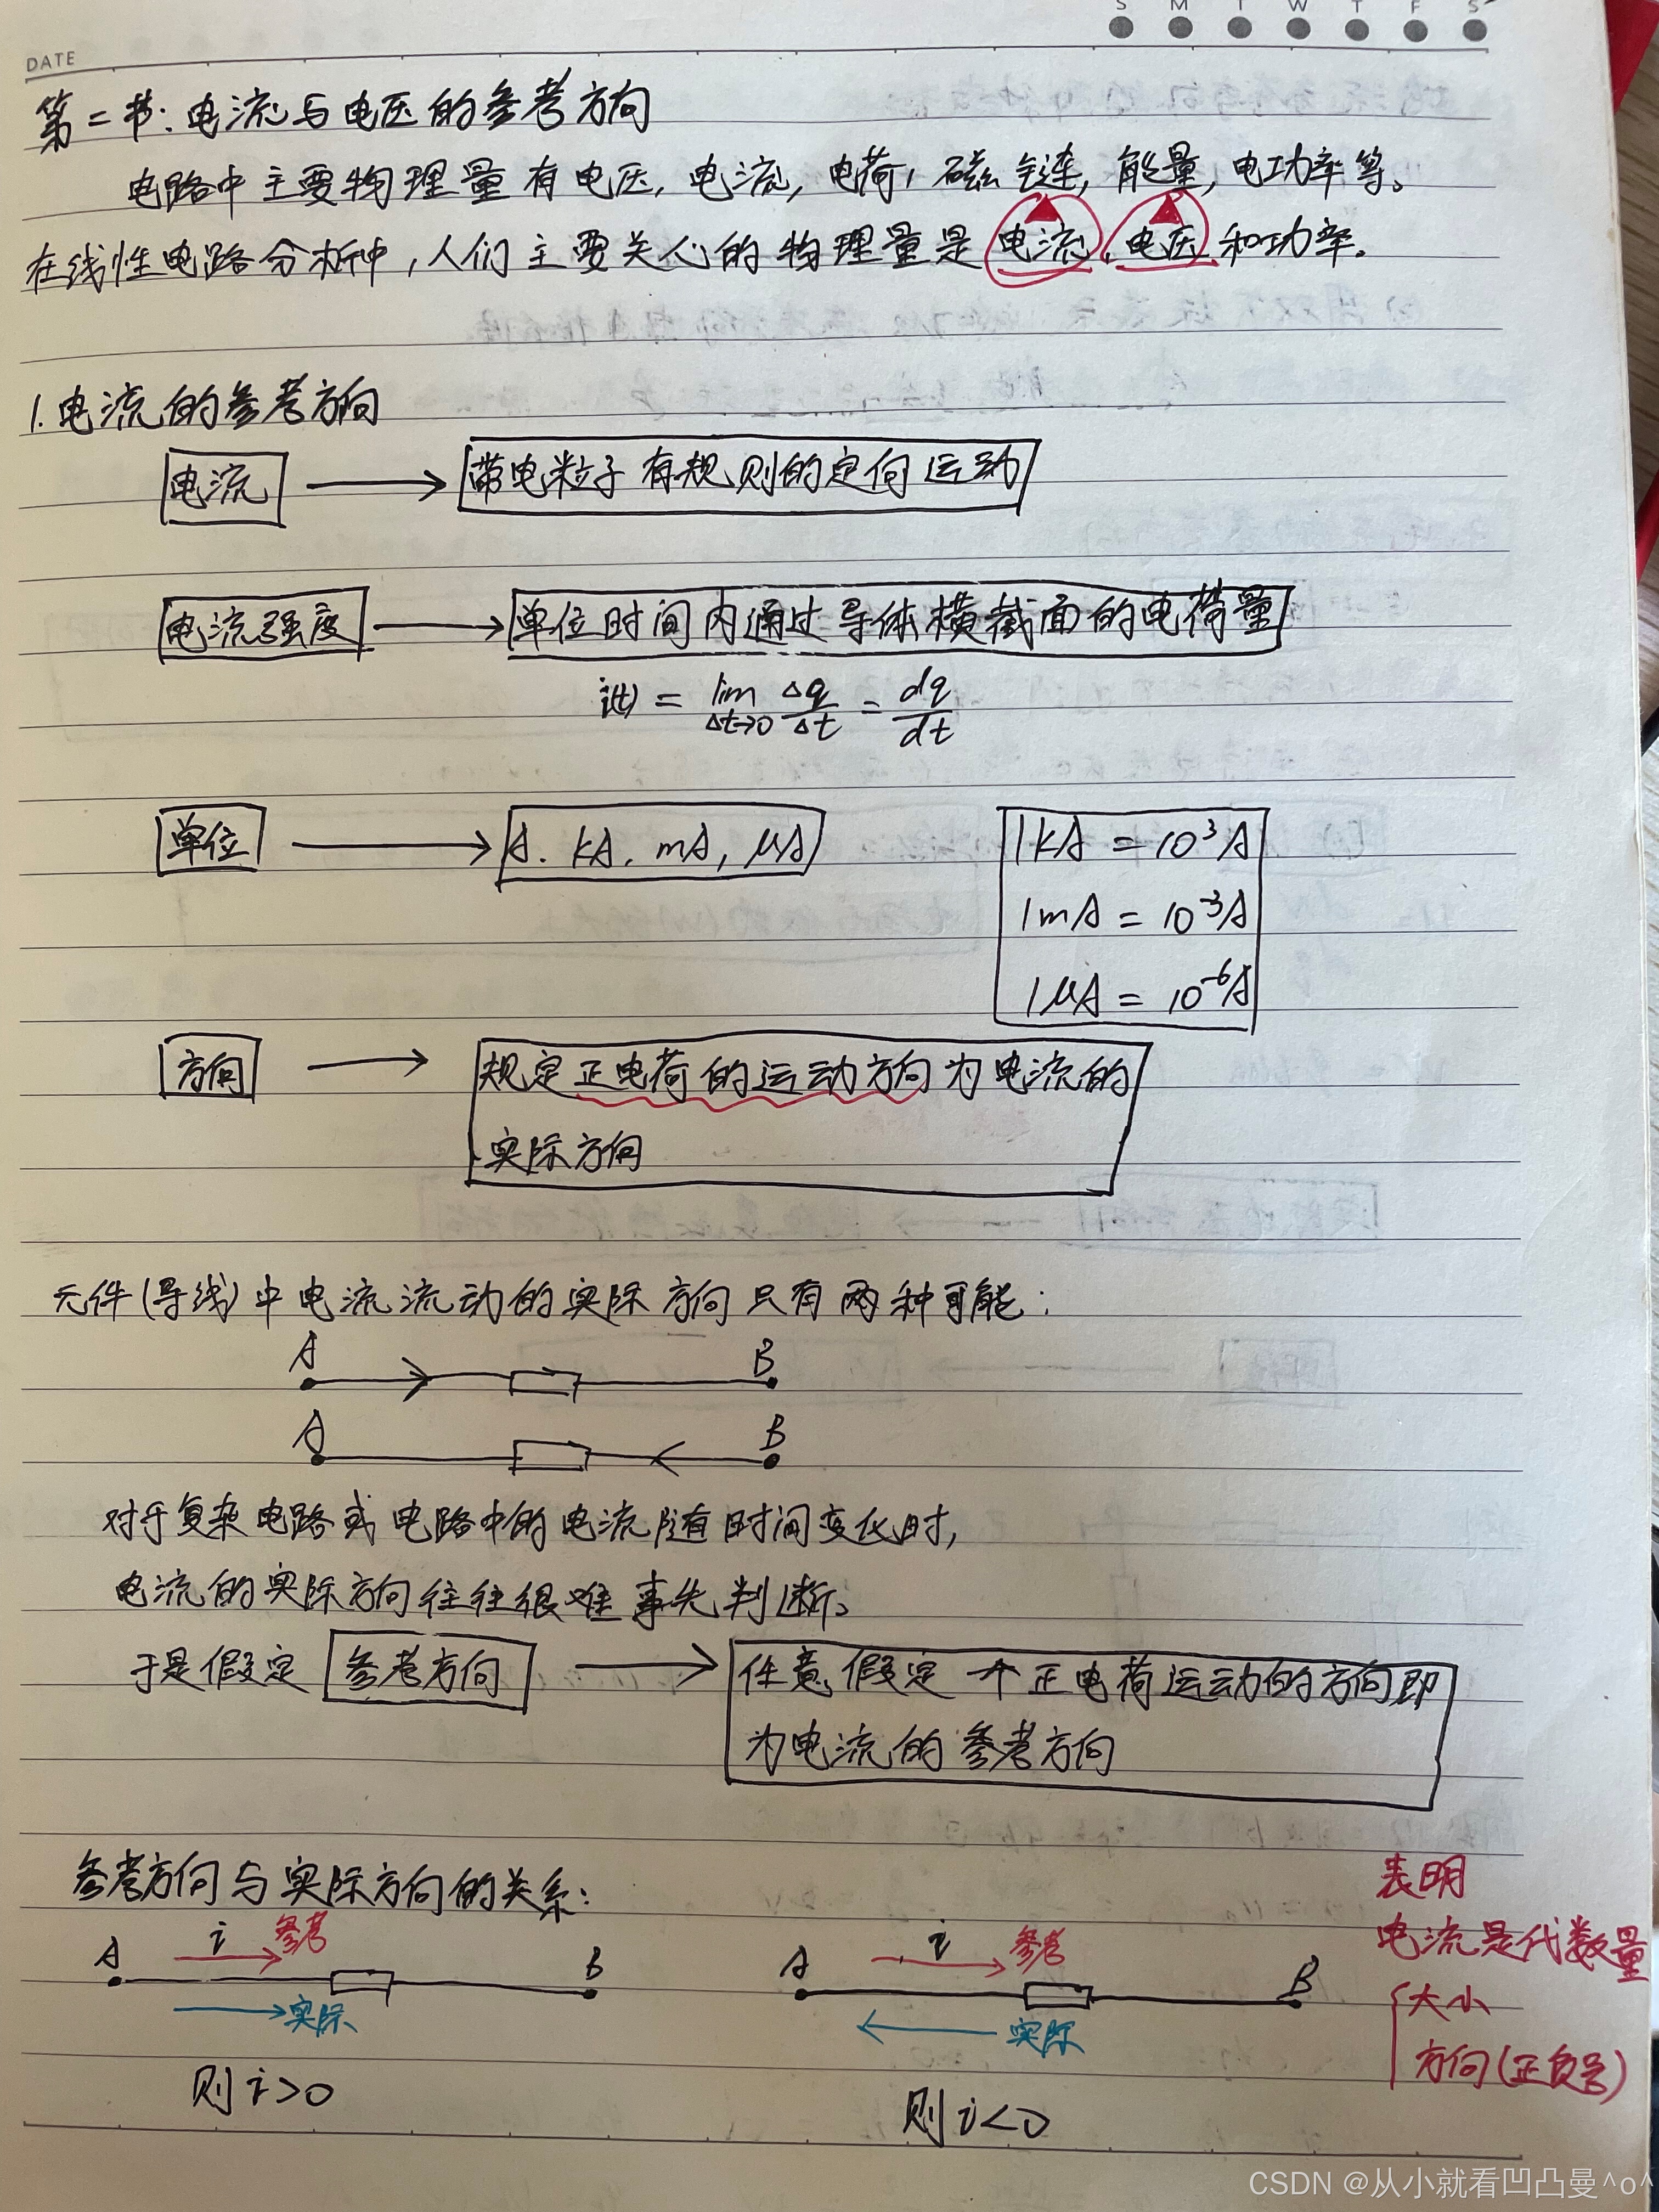 S M T W T F S
DATE
第二节:电流与电压的参考方向
电路中主要物理量有电压,电流,电荷,磁链,能量,电功率等。
在线性电路分析中,人们主要关心的物理量是电流、电压和功率。
1.电流的参考方向
电流 → 带电粒子有规则的定向运动
电流强度 → 单位时间内通过导体横截面的电荷量
i(t) = lim Δt→0 Δq/Δt = dq/dt
单位 → A. kA. mA, μA
1kA = 10³A
1mA = 10⁻³A
1μA = 10⁻⁶A
方向 → 规定正电荷的运动方向为电流的
实际方向
元件(导线)中电流流动的实际方向只有两种可能:
A B
A B
对于复杂电路或电路中的电流随时间变化时,
电流的实际方向往往很难事先判断。
于是假定 参考方向 → 任意假定一个正电荷运动的方向即
为电流的参考方向
参考方向与实际方向的关系:
A i 参考 B
实际
则 i>0
A i 参考 B
实际
则 i<0
表明
电流是代数量
大小
方向(正负号)
CSDN @从小就看凹凸曼^o^